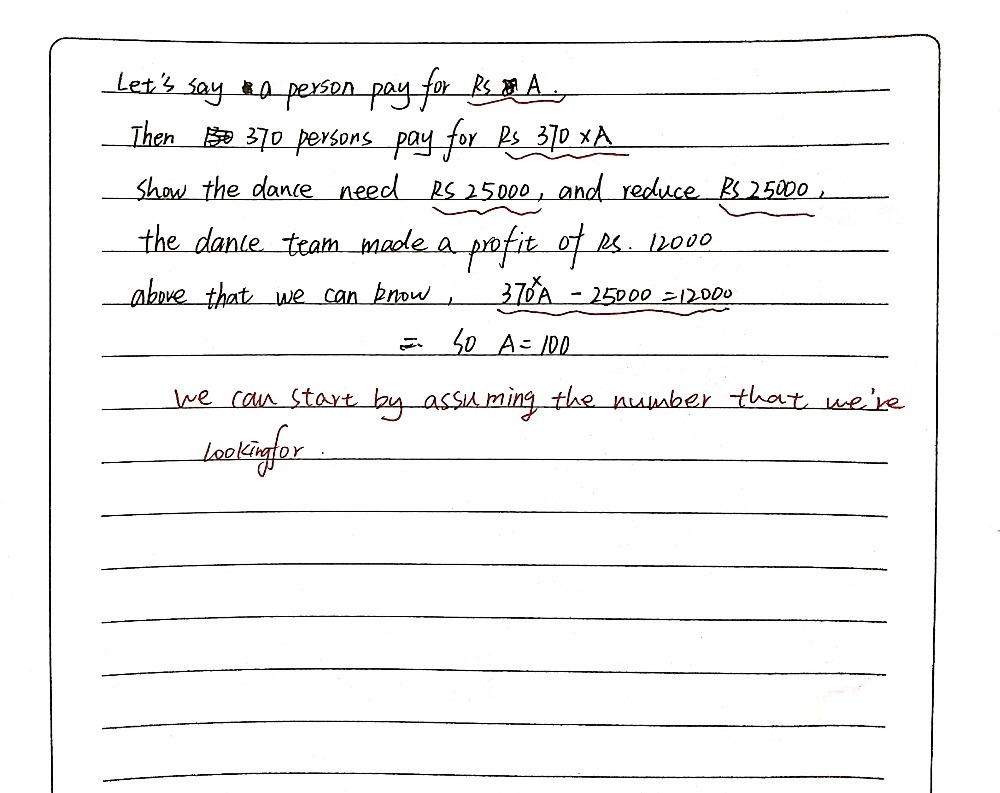 Let's say a person pay for Rs A.
Then 370 persons pay for Rs 370 ×A
Show the dance need RS 25000, and reduce RS 25000,
the dance team made a profit of Rs. 12000
above that we can know, 370×A - 25000 = 12000
= So A = 100
We can start by assuming the number that we're
lookingfor.